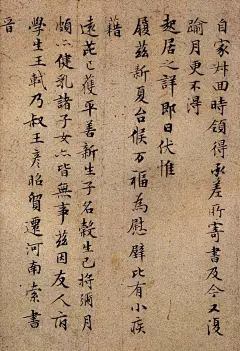 自家舛回時領得承差所寄書及今又復
踰月更不得
起居之詳即日伏惟
履茲新夏台候万福為慰壁比有小疾
藉
遠芘已獲平善新生子名穀生已将彌月
頗亦健乳諸子女亦皆無事茲因友人府
學生王軾乃叔王彦昭貿遷河南索書
晉